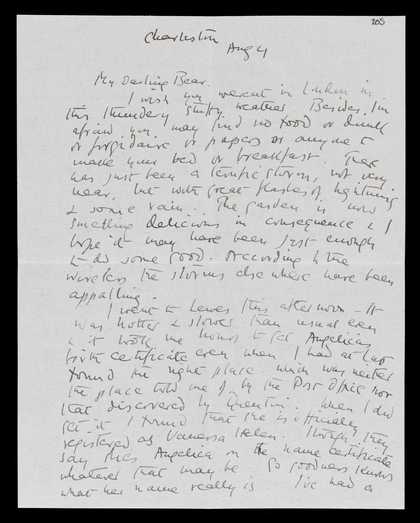 205
Charleston
Aug 4
My Darling Bear.
I wish you weren't in London in
this thundery stuffy weather. Besides I'm
afraid you may find no food or drink
or frigidaire or papers or anyone to
make your bed or breakfast. There
has just been a terrific storm, not very
near, but with great flashes of lightning
& some rain. The garden is now
smelling delicious in consequence & I
hope it may have been just enough
to do some good. According to the
wireless the storms elsewhere have been
appalling.
I went to Lewes this afternoon - It
was hotter & slower than usual even
& it took me hours to get Angelica's
birth certificate even when I had at last
found the right place which was neither
the place told me of by the Post Office nor
that discovered by Quentin. When I did
get it I found that she is officially
registered as Vanessa Helen. Though they
say she's Angelica on the name certificate
whatever that may be. So goodness knows
what her name really is. I've had a